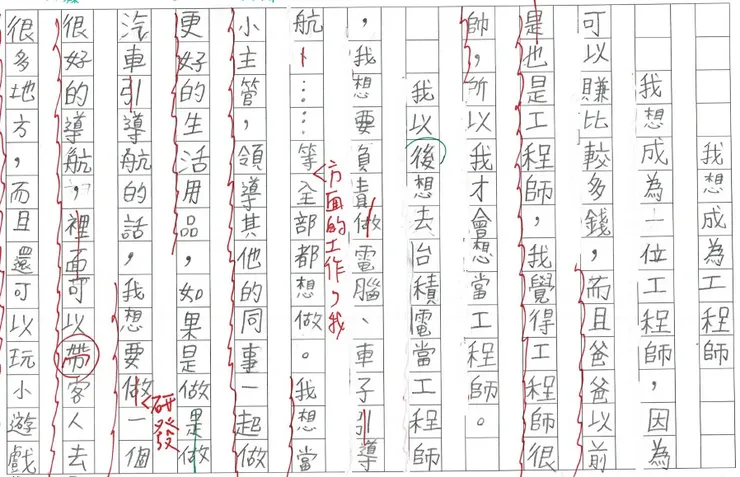 我想成為工程師
我想成為一位工程師，因為
可以賺比較多錢，而且爸爸以前
是也是工程師，我覺得工程師很
帥，所以我才會想當工程師。
我以後想去台積電當工程師
，我想要負責做電腦、車子引導
航……等全部都想做。我想當
方面的工作，我
小主管，領導其他的同事一起做
更好的生活用品，如果是做果做
汽車引導航的話，我想要做一個
研發
很好的導航，裡面可以帶客人去
很多地方，而且還可以玩小遊戲